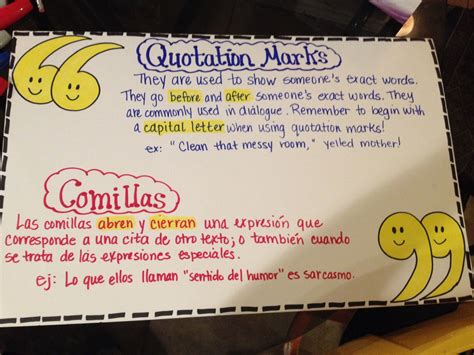 Quotation Marks
They are used to show someone's exact words.
They go before and after someone's exact words. They
are commonly used in dialogue. Remember to begin with
a capital letter when using quotation marks!
ex: "Clean that messy room," yelled mother!
Comillas
Las comillas abren y cierran una expresión que
corresponde a una cita de otro texto; o también cuando
se trata de lás expresiones especiales.
ej: Lo que ellos llaman "sentido del humor" es sarcasmo.